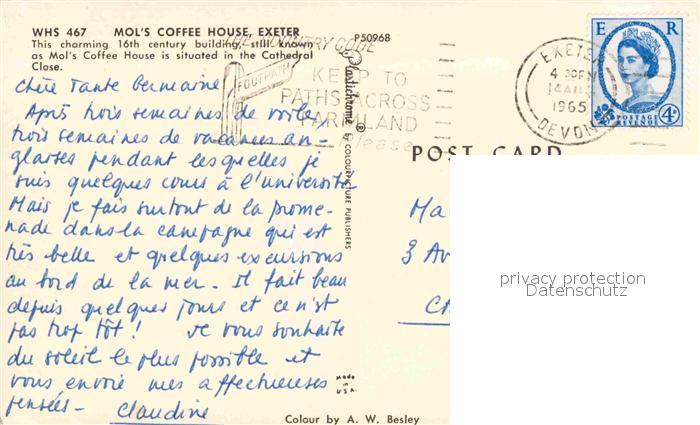 WHS 467 MOL'S COFFEE HOUSE, EXETER
This charming 16th century building, still known
as Mol's Coffee House is situated in the Cathedral
Close.
P50968
THE COUNTRY CODE
FOOTPATH
KEEP TO
PATHS ACROSS
FARMLAND
Please
EXETER
4 30PM
1965
DEVON
E R
POSTAGE
REVENUE
4D
Chère Tante Germaine,
Après trois semaines de voile,
trois semaines de vacances an-
glaises pendant lesquelles je
suis quelques cours à l'université
Mais je fais surtout de la prome-
nade dans la campagne qui est
très belle et quelques excursions
au bord de la mer. Il fait beau
depuis quelques jours et ce n'est
pas trop tôt ! Je vous souhaite
du soleil le plus possible et
vous envoie mes affectueuses
pensées - Claudine
Plastichrome ® by COLOURPICTURE PUBLISHERS
Made in
U.S.A.
POST CARD
Ma
3 Av
privacy protection
Datenschutz
Colour by A. W. Besley